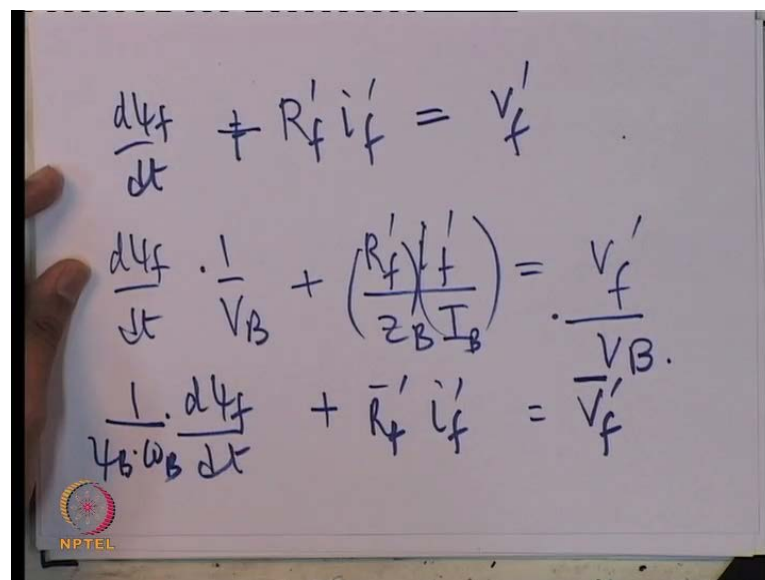 dψf/dt + Rf' if' = vf'
dψf/dt · 1/VB + (Rf'/ZB)(if'/IB) = vf'/VB.
1/(ψB·ωB) · dψf/dt + R̄f' if' = V̄f'
NPTEL